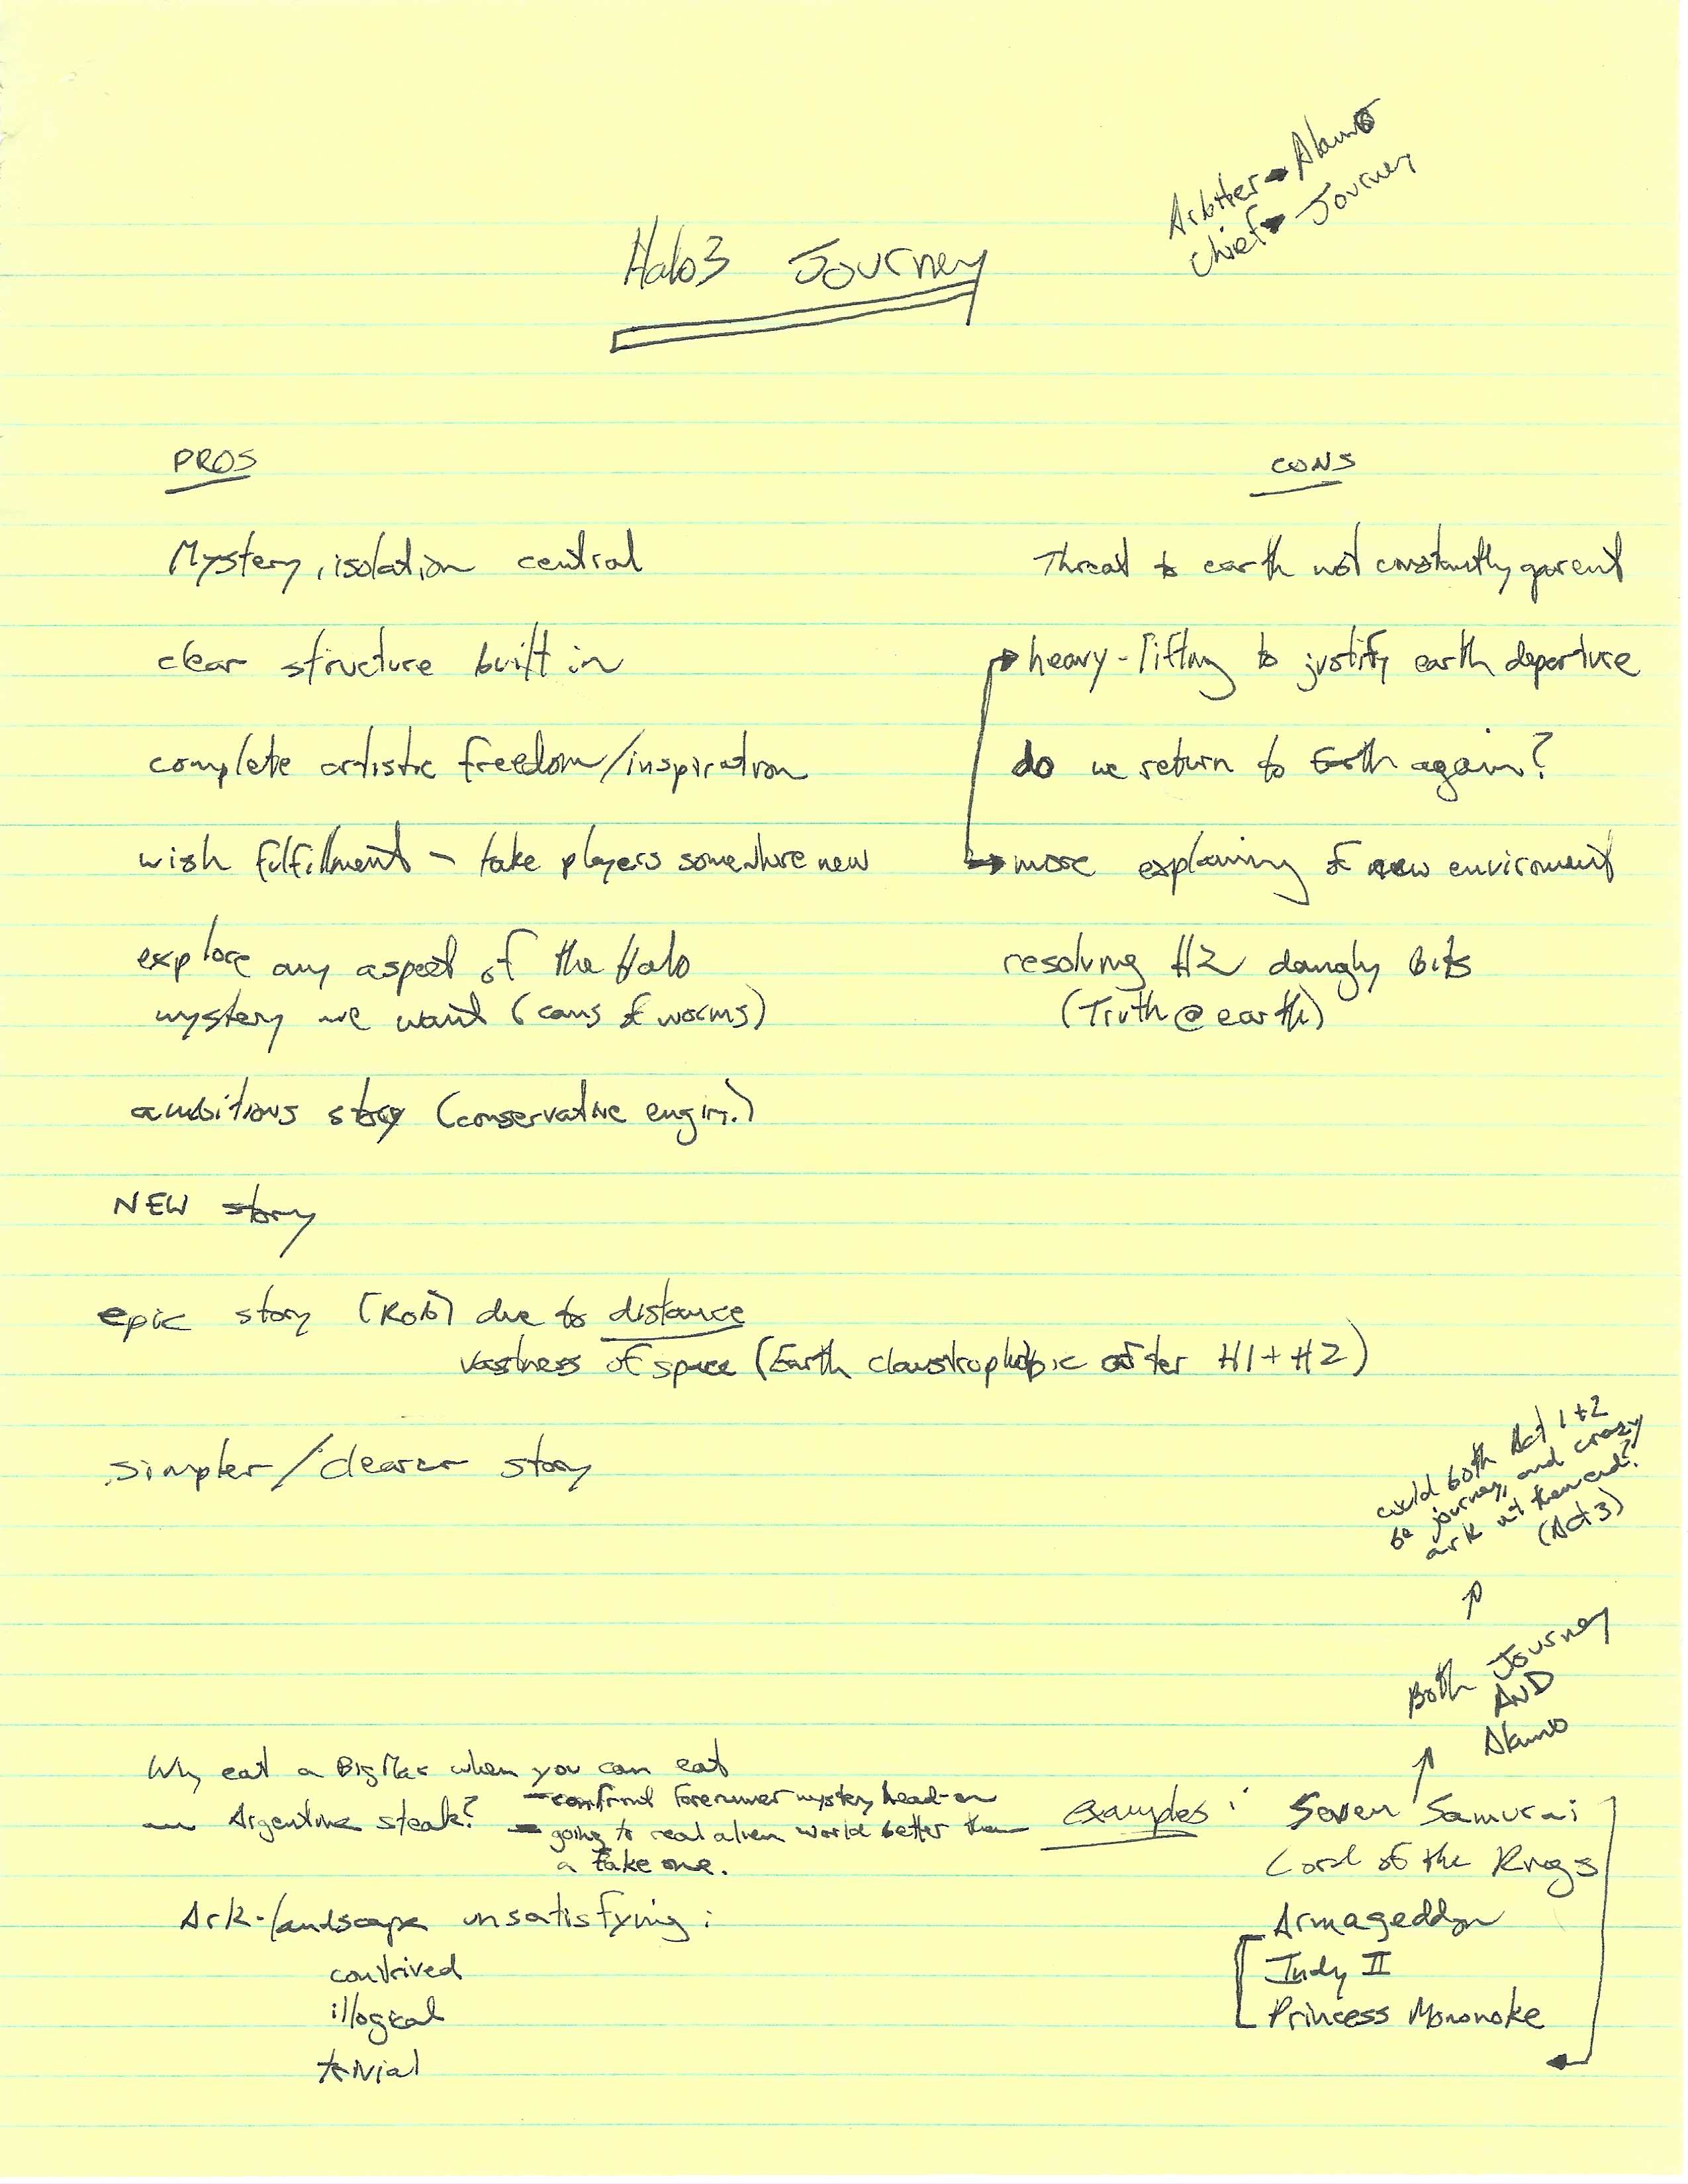 Arbiter → Alamo
Chief → Journey
Halo3 Journey
PROS
CONS
Mystery, isolation central
Threat to earth not constantly parent
clear structure built in
heavy-lifting to justify earth departure
complete artistic freedom/inspiration
do we return to Earth again?
wish fulfillment - take players somewhere new
more explaining of new enviroment
explore any aspect of the Halo
mystery we want (cans of worms)
resolving H2 dangly bits
(Truth @ earth)
ambitious story (conservative engin.)
NEW story
epic story (Rob) due to distance
vastness of space (Earth claustrophobic after H1 + H2)
simpler/clearer story
could both Act 1+2
be journey, and crazy
ark at then end?
(Act 3)
Both Journey
AND
Alamo
Why eat a Big Mac when you can eat
an Argentine steak?
- confront Forerunner mystery head-on
- going to real alien world better than
a fake one.
Ark-landscape unsatisfying:
contrived
illogical
trivial
examples:
Seven Samurai
Lord of the Rings
Armageddon
Indy II
Princess Mononoke